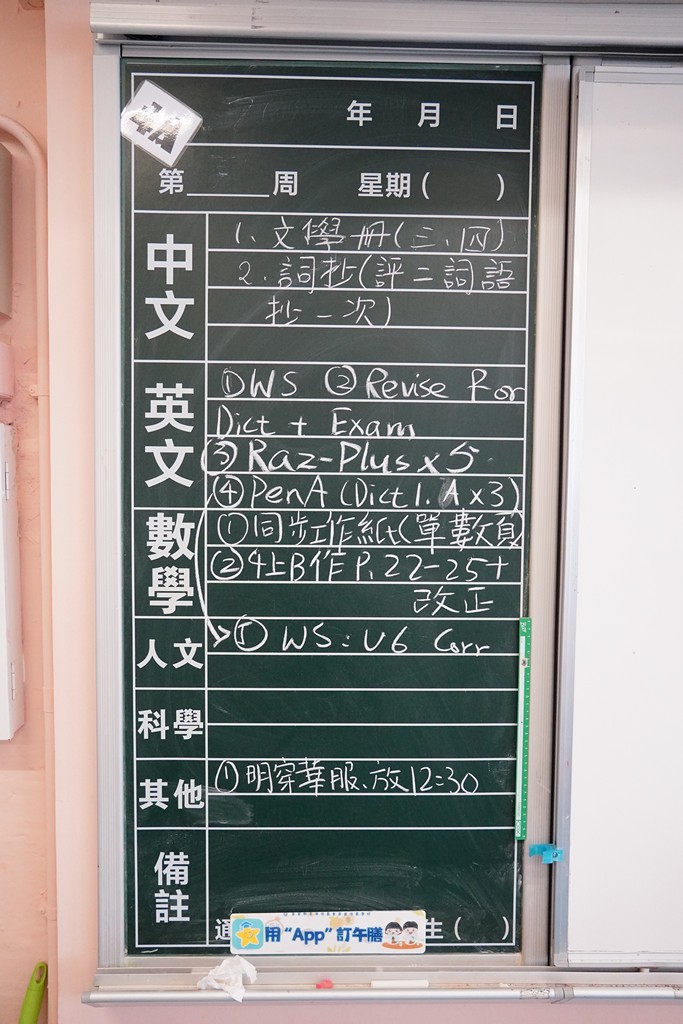 4A
年 月 日
第 周 星期( )
中文
1. 文學冊(三、四)
2. 詞抄(評二詞語
抄一次)
英文
① DWS ② Revise For
Dict + Exam
③ Raz-Plus x 5
④ PenA (Dict 1. A x3)
數學
① 同步工作紙(單數頁)
② 4上B作 P. 22-25+
改正
人文
⑤ WS: U6 Corr
科學
其他
① 明穿華服、放12:30
備註
通 生( )
用“App”訂午膳